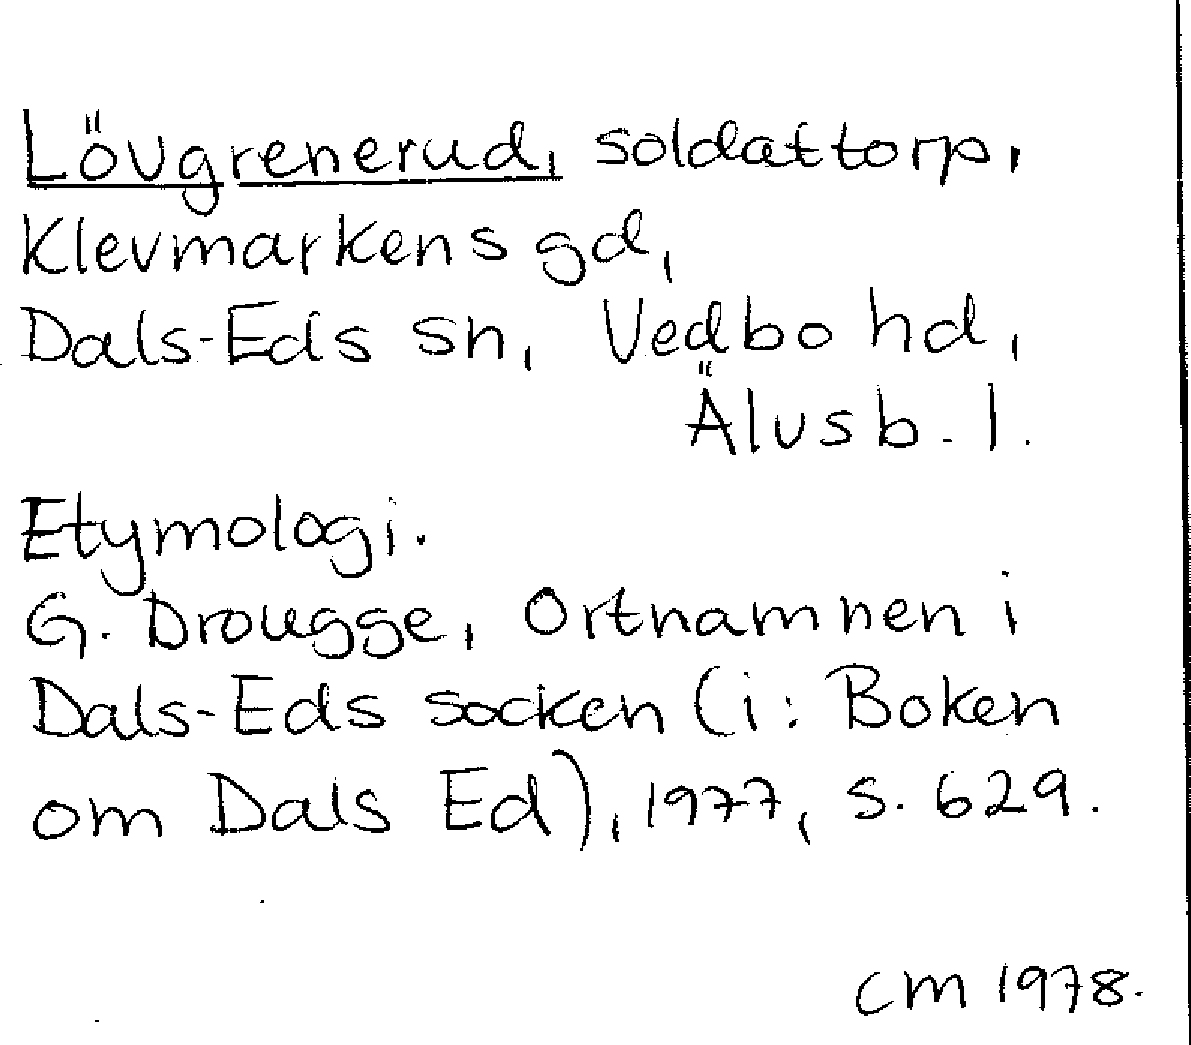 Lövgrenerud, soldattorp,
Klevmarkens gd,
Dals-Eds sn, Vedbo hd,
Älvsb. l.
Etymologi.
G. Drougge, Ortnamnen i
Dals-Eds socken (i: Boken
om Dals Ed), 1977, s. 629.
CM 1978.